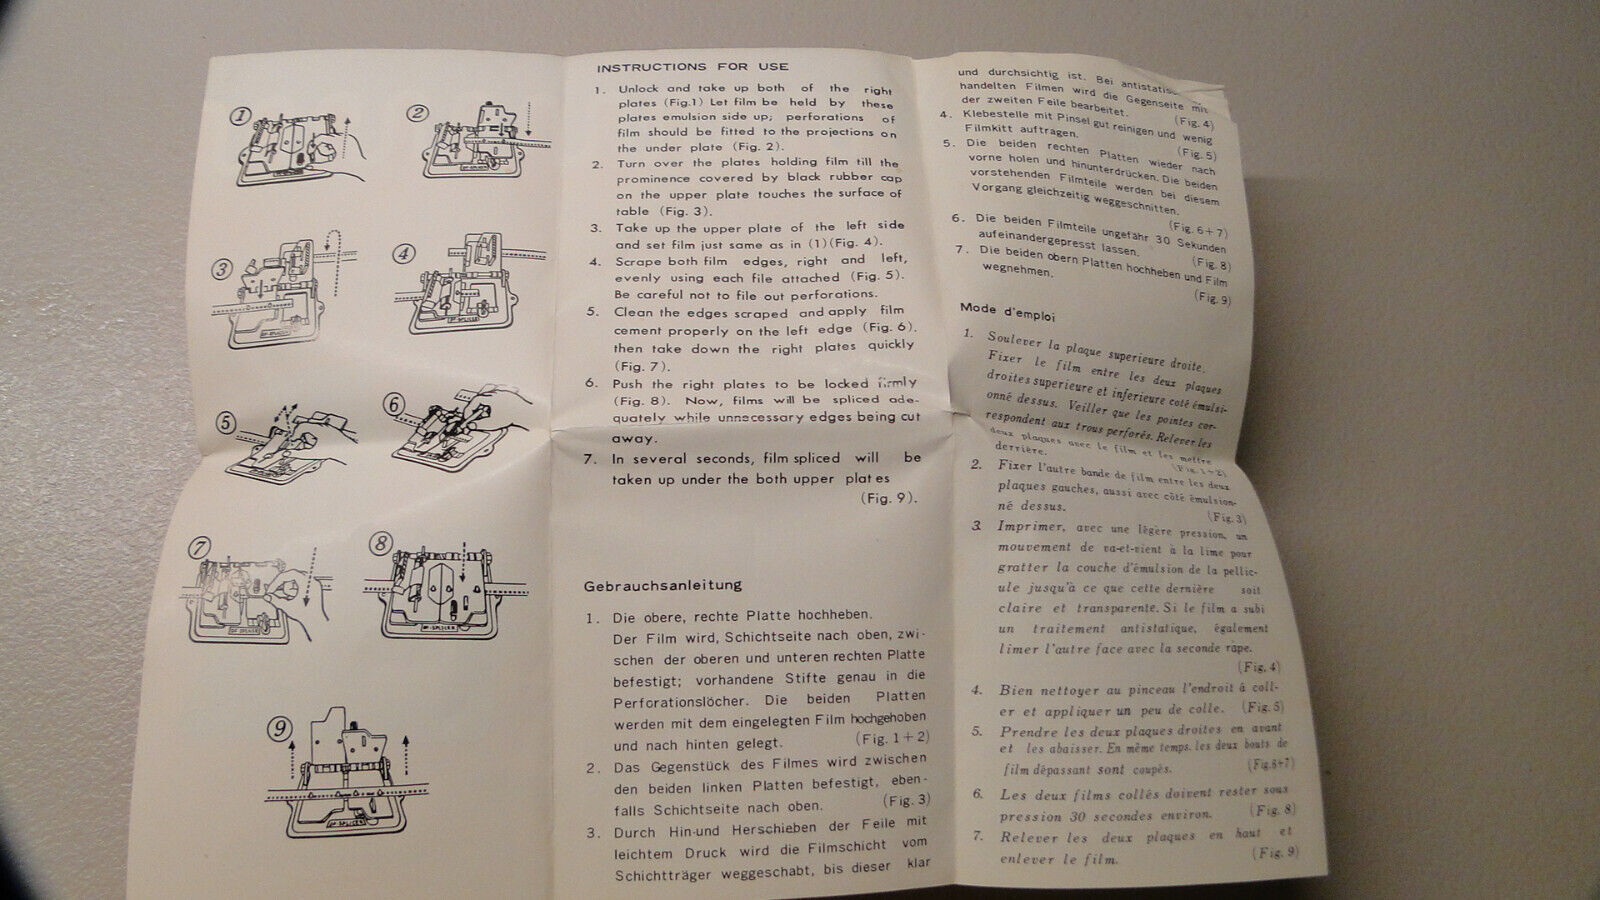 1
2
3
4
5
6
7
8
9
INSTRUCTIONS FOR USE
1. Unlock and take up both of the right
plates (Fig.1) Let film be held by these
plates emulsion side up; perforations of
film should be fitted to the projections on
the under plate (Fig. 2).
2. Turn over the plates holding film till the
prominence covered by black rubber cap
on the upper plate touches the surface of
table (Fig. 3).
3. Take up the upper plate of the left side
and set film just same as in (1)(Fig. 4).
4. Scrape both film edges, right and left,
evenly using each file attached (Fig. 5).
Be careful not to file out perforations.
5. Clean the edges scraped and apply film
cement properly on the left edge (Fig. 6).
then take down the right plates quickly
(Fig. 7).
6. Push the right plates to be locked firmly
(Fig. 8). Now, films will be spliced ade-
quately while unnecessary edges being cut
away.
7. In several seconds, film spliced will be
taken up under the both upper plates
(Fig. 9).
Gebrauchsanleitung
1. Die obere, rechte Platte hochheben.
Der Film wird, Schichtseite nach oben, zwi-
schen der oberen und unteren rechten Platte
befestigt; vorhandene Stifte genau in die
Perforationslöcher. Die beiden Platten
werden mit dem eingelegten Film hochgehoben
und nach hinten gelegt. (Fig. 1+2)
2. Das Gegenstück des Filmes wird zwischen
den beiden linken Platten befestigt, eben-
falls Schichtseite nach oben. (Fig. 3)
3. Durch Hin-und Herschieben der Feile mit
leichtem Druck wird die Filmschicht vom
Schichtträger weggeschabt, bis dieser klar
und durchsichtig ist. Bei
handelten Filmen wird die Gegenseite mit
der zweiten Feile bearbeitet. (Fig. 4)
4. Klebestelle mit Pinsel gut reinigen und wenig
Filmkitt auftragen. (Fig. 5)
5. Die beiden rechten Platten wieder nach
vorne holen und hinunterdrücken. Die beiden
vorstehenden Filmteile werden bei diesem
Vorgang gleichzeitig weggeschnitten.
(Fig. 6+7)
6. Die beiden Filmteile ungefähr 30 Sekunden
aufeinandergepresst lassen. (Fig. 8)
7. Die beiden obern Platten hochheben und Film
wegnehmen. (Fig. 9)
Mode d'emploi
1. Soulever la plaque superieure droite.
Fixer le film entre les deux plaques
droites superieure et inferieure coté émulsi-
onné dessus. Veiller que les pointes cor-
respondent aux trous perforés. Relever les
deux plaques avec le film et les mettre
derrière. (Fig. 1+2)
2. Fixer l'autre bande de film entre les deux
plaques gauches, aussi avec côté émulsion-
né dessus. (Fig. 3)
3. Imprimer, avec une légère pression, un
mouvement de va-et-vient à la lime pour
gratter la couche d'émulsion de la pellic-
ule jusqu'à ce que cette dernière soit
claire et transparente. Si le film a subi
un traitement antistatique, également
limer l'autre face avec la seconde râpe.
(Fig. 4)
4. Bien nettoyer au pinceau l'endroit à coll-
er et appliquer un peu de colle. (Fig. 5)
5. Prendre les deux plaques droites en avant
et les abaisser. En même temps, les deux bouts de
film dépassant sont coupés. (Fig.6+7)
6. Les deux films collés doivent rester sous
pression 30 secondes environ. (Fig. 8)
7. Relever les deux plaques en haut et
enlever le film. (Fig. 9)